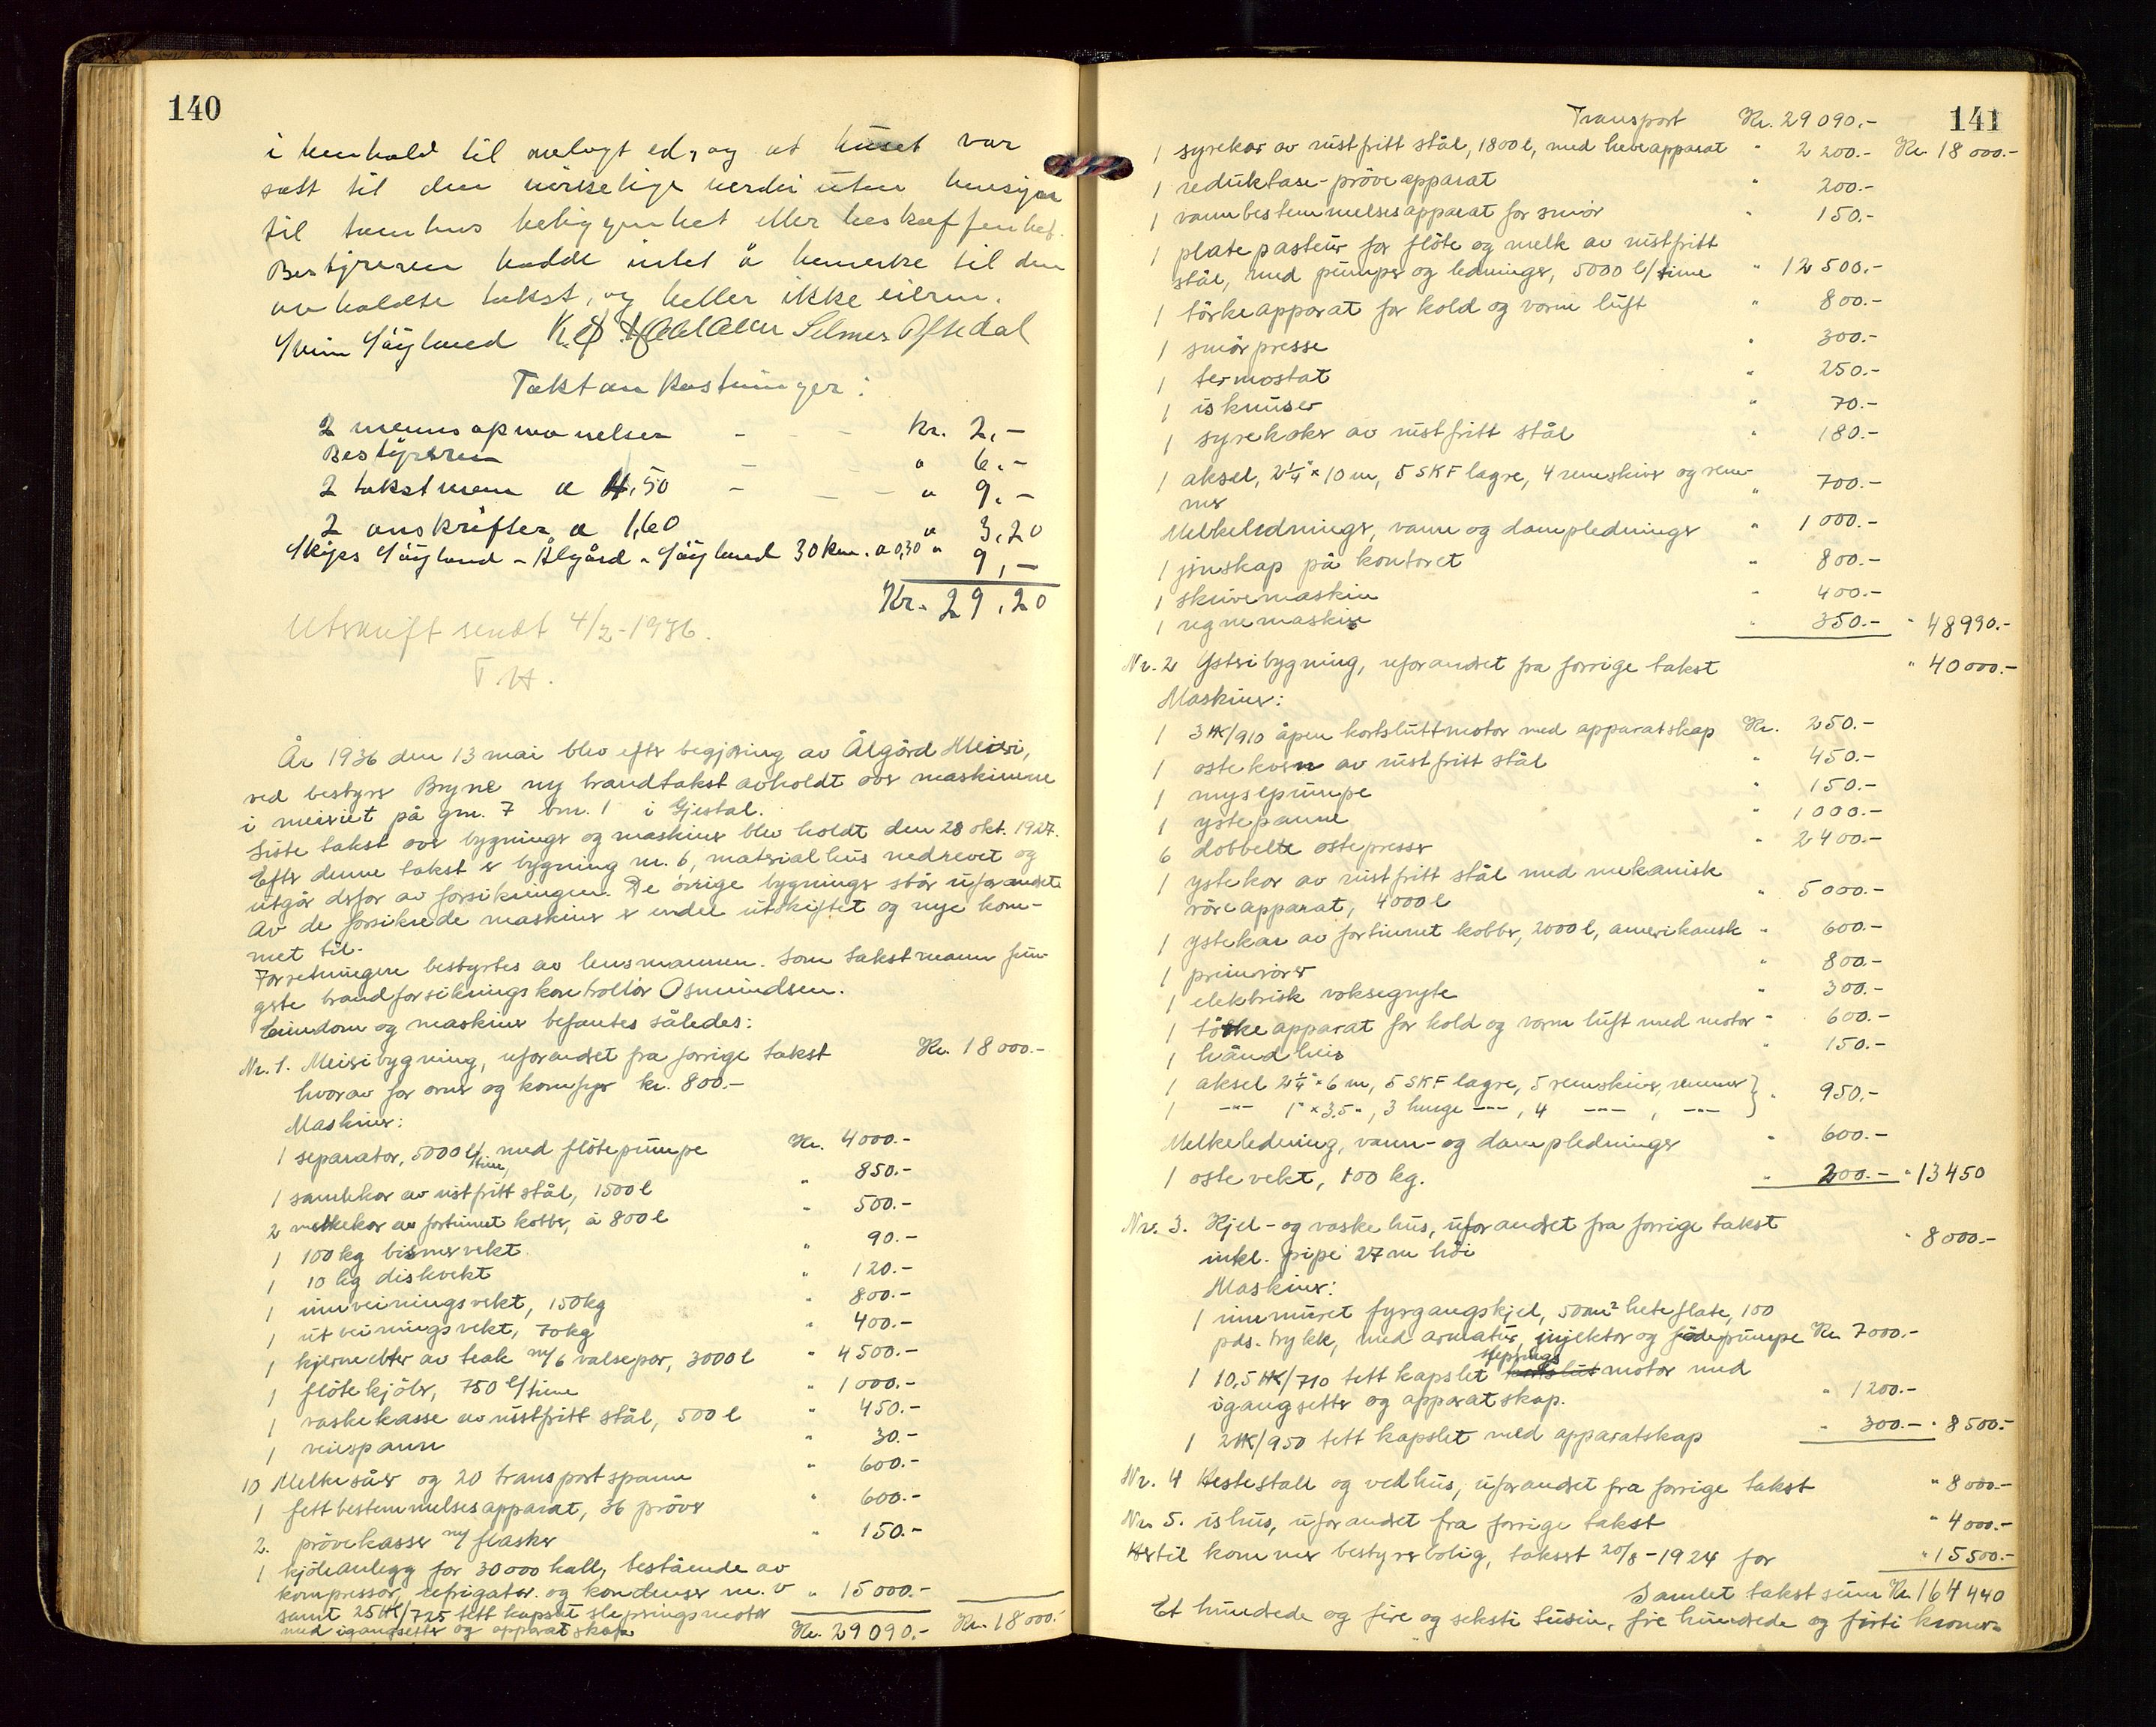 140
i henhold til avlagt ed, og at huset var
satt til den virkelige verdi uten hensyn
til tomtens beliggenhet eller beskaffenhet.
Bestyreren hadde intet å bemerke til den
avholdte takst, og heller ikke eieren.
Selmer Oftedal
Takstomkostninger:
2 mennsopnevnelser - - - Kr. 2,-
Bestyreren - - " 6.-
2 takstmenn a 4,50 - - - " 9.-
2 avskrifter a 1,60 " 3,20
Skyss Søyland - Ålgård - Søyland 30 km. a 0,30 " 9,-
Kr. 29,20
Utskrift sendt 4/2-1936.
T.H.
År 1936 den 13 mai blev efter begjæring av Ålgård Meieri,
ved bestyrer Bryne ny brandtakst avholdt over maskinene
i meieriet på gnr. 7 bnr. 1 i Gjestal.
Siste takst over bygninger og maskiner blev holdt den 28 okt. 1927.
Efter denne takst er bygning nr. 6, materialhus nedrevet og
utgår derfor av forsikringen. De øvrige bygninger står uforandret.
Av de forsikrede maskiner er endel utskiftet og nye kom-
met til.
Forretningen bestyrtes av lensmannen. Som takstmann fun-
gerte brandforsikringskontrollør Osmundsen.
Eiendom og maskiner befantes således:
Nr. 1. Meieribygning, uforandret fra forrige takst Kr. 18 000.-
hvorav for ovner og komfyr kr. 800.-
Maskiner:
1 separator, 5000 l/time, med fløtepumpe Kr. 4000.-
1 samlekar av rustfritt stål, 1500 l " 850.-
2 melkekar av fortinnet kobber, à 800 l " 500.-
1 100 kg bismervekt " 90.-
1 10 kg diskvekt " 120.-
1 innveiningsvekt, 150 kg " 800.-
1 utveiningsvekt, 70 kg " 400.-
1 kjerneelter av teak m/6 valsepar, 3000 l " 4500.-
1 fløtekjøler, 750 l/time " 1000.-
1 vaskekasse av rustfritt stål, 500 l " 450.-
1 veiespann " 30.-
10 Melkesåer og 20 transportspann " 600.-
1 fettbestemmelsesapparat, 36 prøver " 600.-
2. prøvekasser m/ flasker " 150.-
1 kjøleanlegg for 30000 kall, bestående av
kompressor, refrigator og kondenser nr. V " 15000.-
samt 25 HK/725 tett kapslet sleperingsmotor
med igangsetter og apparatskap Kr. 29090.- Kr. 18000.-
141
Transport Kr. 29 090.-
1 syrekar av rustfritt stål, 1800 l, med heveapparat " 2 200.- Kr. 18 000.-
1 reduktase-prøveapparat " 200.-
1 vannbestemmelsesapparat for smør " 150.-
1 platepasteur for fløte og melk av rustfritt
stål, med pumper og ledninger, 5000 l/time " 12 500.-
1 tørkeapparat for kold og varm luft " 800.-
1 smørpresse " 300.-
1 termostat " 250.-
1 isknuser " 70.-
1 syrekoker av rustfritt stål " 180.-
1 aksel, 2 1/4" x 10 m, 5 SKF lagre, 4 remskiver og rem-
mer " 700.-
Melkeledninger, vann og dampledninger " 1 000.-
1 jernskap på kontoret " 800.-
1 skrivemaskin " 400.-
1 regnemaskin " 350.- " 48990.-
Nr. 2 Ysteribygning, uforandret fra forrige takst " 40 000.-
Maskiner:
1 3 HK/910 åpen kortsluttmotor med apparatskap Kr. 250.-
1 ostekvern av rustfritt stål " 450.-
1 mysepumpe " 150.-
1 ystepanne " 1000.-
6 dobbelte ostepresser " 2400.-
1 ystekar av rustfritt stål med mekanisk
røreapparat, 4000 l " 5000.-
1 ystekar av fortinnet kobber, 2000 l, amerikansk " 600.-
1 primrører " 800.-
1 elektrisk voksegryte " 300.-
1 tørkeapparat for kold og varm luft med motor " 600.-
1 håndheis " 150.-
1 aksel 2 1/4" x 6 m, 5 SKF lagre, 5 remskiver, remmer }
1 -"- 1" x 3.5 ", 3 henge -"-, 4 -"-, -"- } " 950.-
Melkeledning, vann- og dampledninger " 600.-
1 ostevekt, 100 kg. " 200.- " 13450
Nr. 3. Kjel- og vaskehus, uforandret fra forrige takst
inkl. pipe 27 m høi " 8000.-
Maskiner:
1 innmuret fyrgangskjel, 50 m² heteflate, 100
pds. trykk, med armatur, injektor og fødepumpe Kr. 7000.-
sleprings
1 10,5 HK/710 tett kapslet kortslutmotor med
igangsetter og apparatskap. " 1200.-
1 2 HK/950 tett kapslet med apparatskap " 300.- " 8500.-
Nr. 4 Hestestall og vedhus, uforandret fra forrige takst " 8000.-
Nr. 5. ishus, uforandret fra forrige takst " 4000.-
Hertil kommer bestyrerbolig, takst 20/8-1924 for " 15500.-
Samlet takstsum Kr. 164 440
Et hundrede og fire og seksti tusin, fire hundrede og firti kroner.